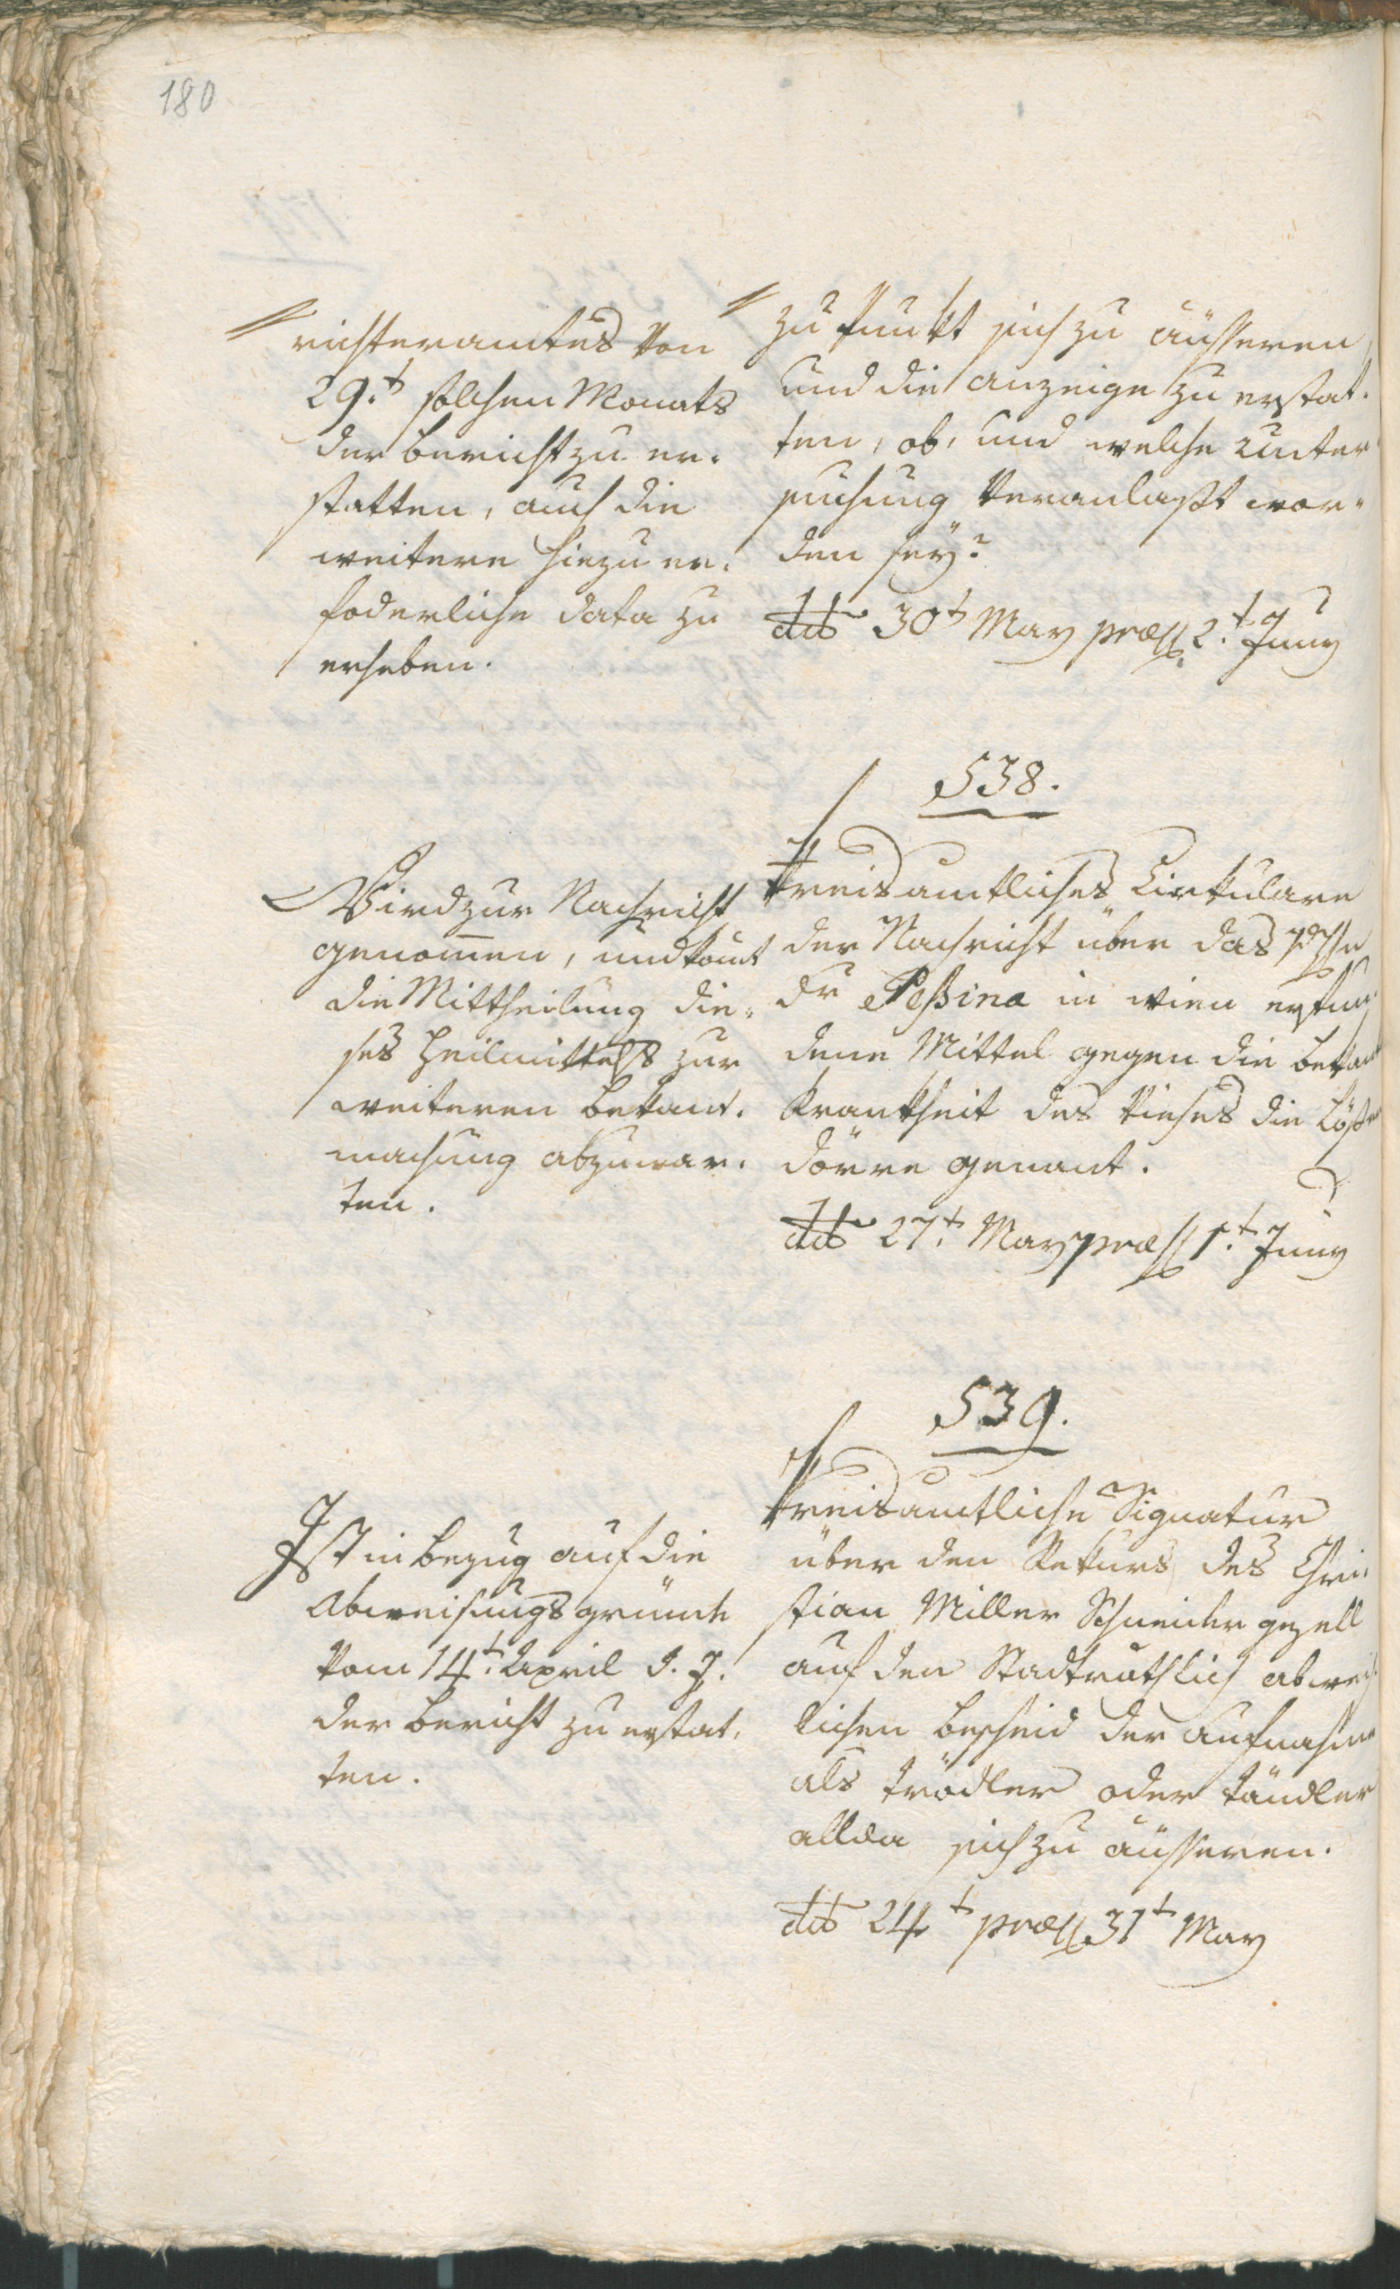 180
richteramtes von
29.t solchen Monats
der bericht zu er-
statten, auch die
weitere hiezu er-
foderliche data zu
erheben.
zu Punkt sich zu äusseren
und die anzeige zu erstat-
ten, ob, und welche unter
suchung veranlaßt wor-
den seÿ?
ddto 30t May præs 2.t Juny
538.
Wird zur Nachricht
genomen, und komt
die Mittheilung die-
ses Heilmittels zur
weiteren bekant-
machung abzuwar-
ten.
Kreisamtliches Cirkulare
der Nachricht über das
Dr Peßina in wien erfun-
dene Mittel gegen die
krankheit des Viehes die Löser
dörre genant.
ddto 27.t May præs 1.t Juny
539.
Ist in bezug auf die
Abweisungs gründe
vom 14.t April d. J.
der bericht zu erstat-
ten.
Kreisamtliche Signatur
über den Rekurs des Chri-
stian Miller Schneider gesell
auf den Stadträthlich abweis
lichen bescheid der aufnahme
als trödler oder tändler
allda sich zu äusseren.
ddto 24t præs 31t May